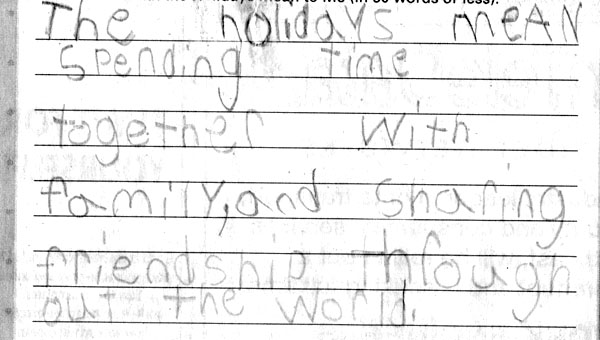 mean to Me (in 50 words or less).
The holidays meAN
Spending time
together with
family, and sharing
friendship through
out the world.